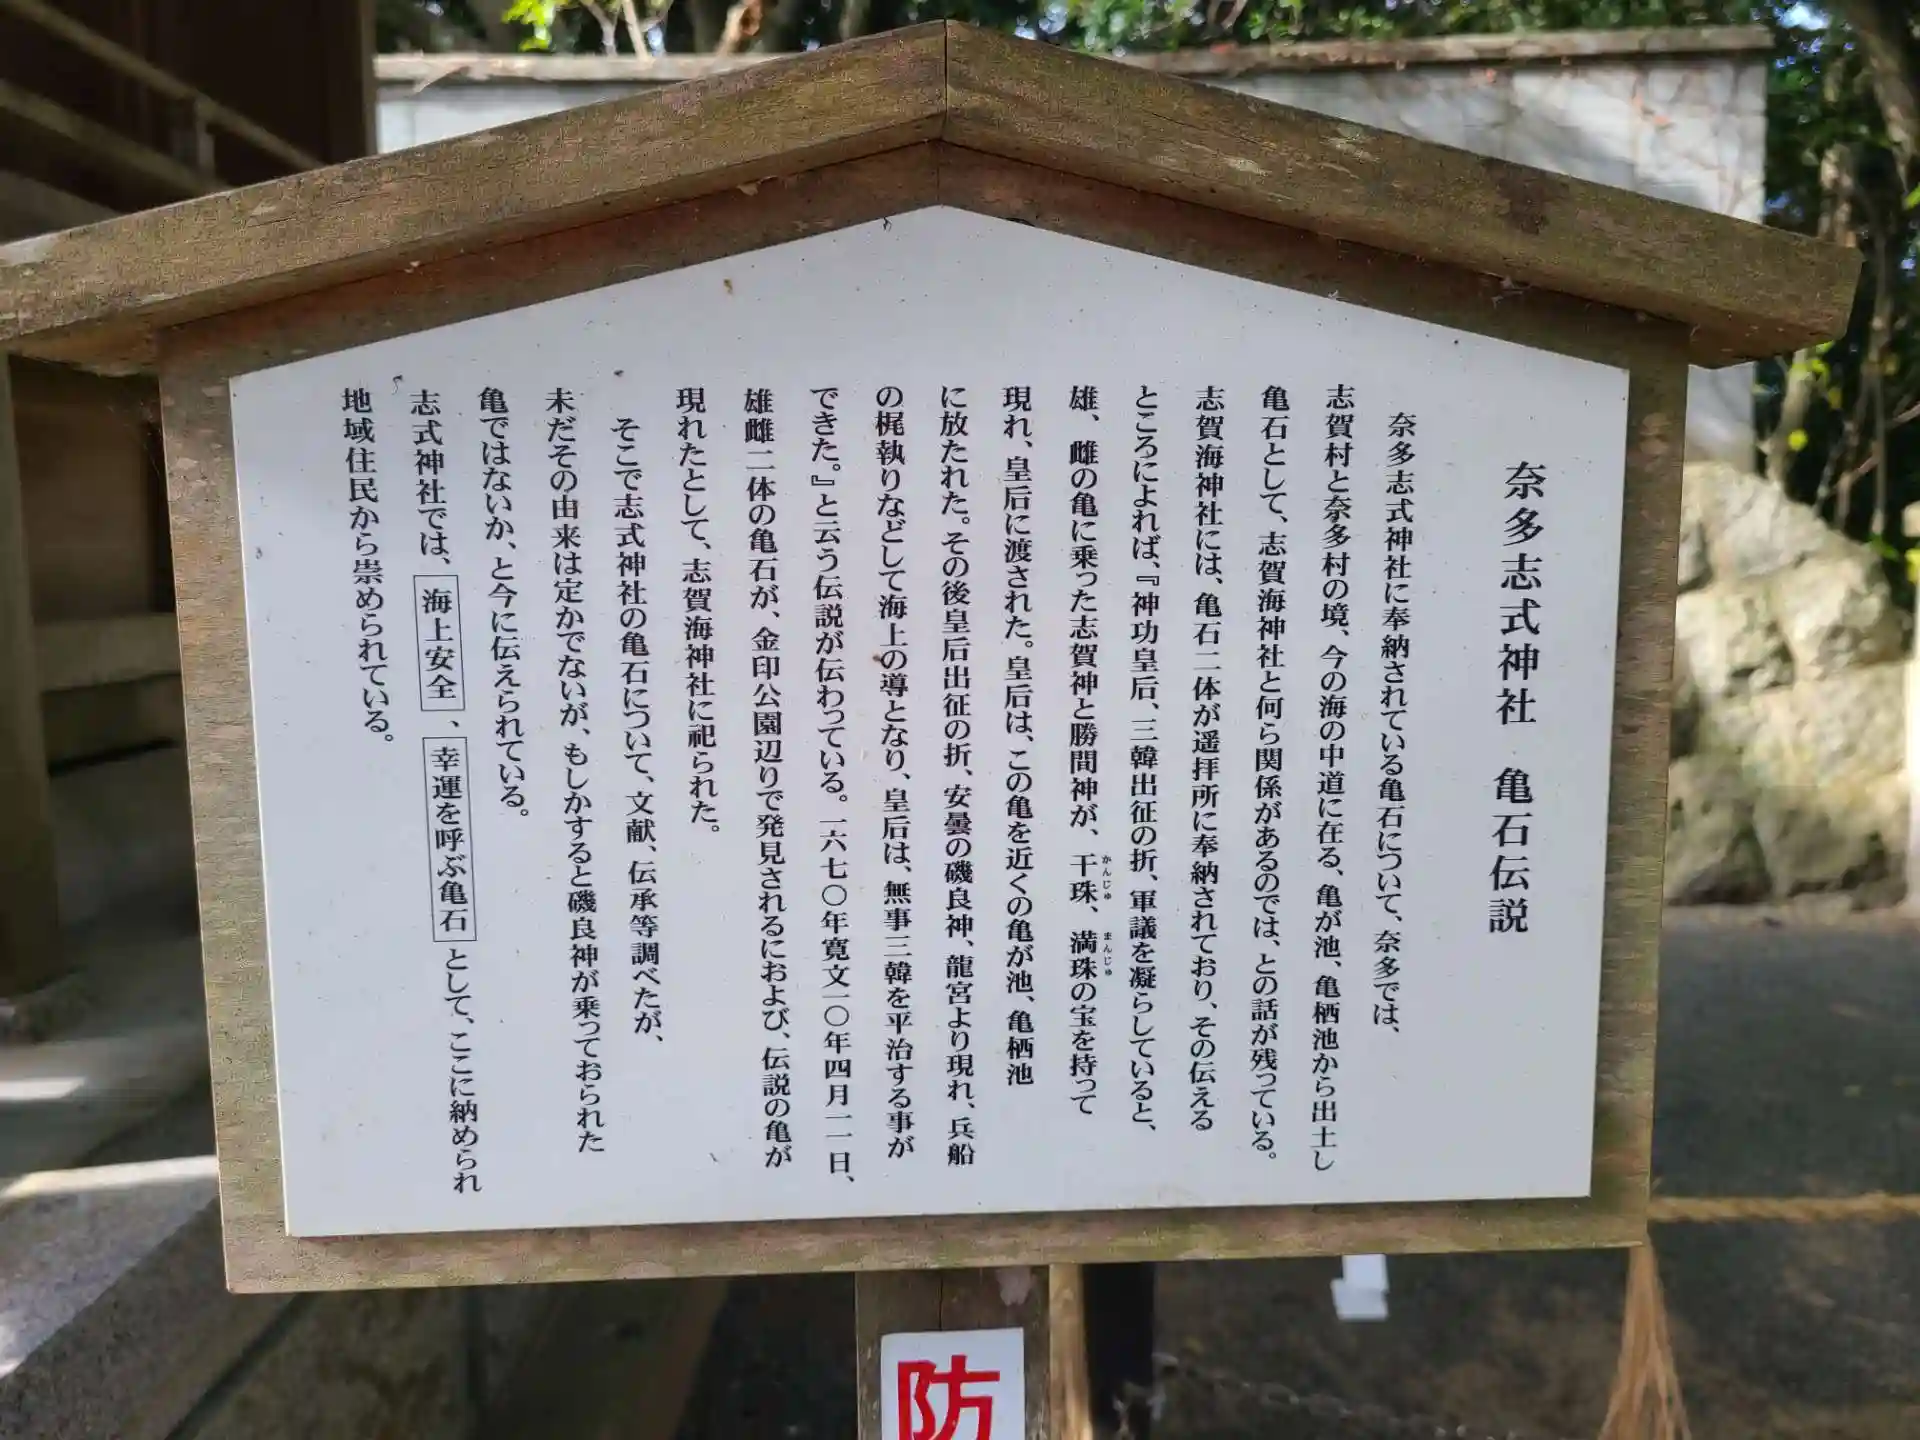 奈多志式神社 亀石伝説
奈多志式神社に奉納されている亀石について、奈多では、
志賀村と奈多村の境、今の海の中道に在る、亀が池、亀栖池から出土し
亀石として、志賀海神社と何ら関係があるのでは、との話が残っている。
志賀海神社には、亀石二体が遥拝所に奉納されており、その伝える
ところによれば、『神功皇后、三韓出征の折、軍議を凝らしていると、
雄、雌の亀に乗った志賀神と勝間神が、干珠、満珠の宝を持って
かんじゅ まんじゅ
現れ、皇后に渡された。皇后は、この亀を近くの亀が池、亀栖池
に放たれた。その後皇后出征の折、安曇の磯良神、龍宮より現れ、兵船
の梶執りなどして海上の導となり、皇后は、無事三韓を平治する事が
できた。』と云う伝説が伝わっている。一六七〇年寛文一〇年四月一一日、
雄雌二体の亀石が、金印公園辺りで発見されるにおよび、伝説の亀が
現れたとして、志賀海神社に祀られた。
そこで志式神社の亀石について、文献、伝承等調べたが、
未だその由来は定かでないが、もしかすると磯良神が乗っておられた
亀ではないか、と今に伝えられている。
志式神社では、海上安全、幸運を呼ぶ亀石として、ここに納められ
地域住民から崇められている。
防